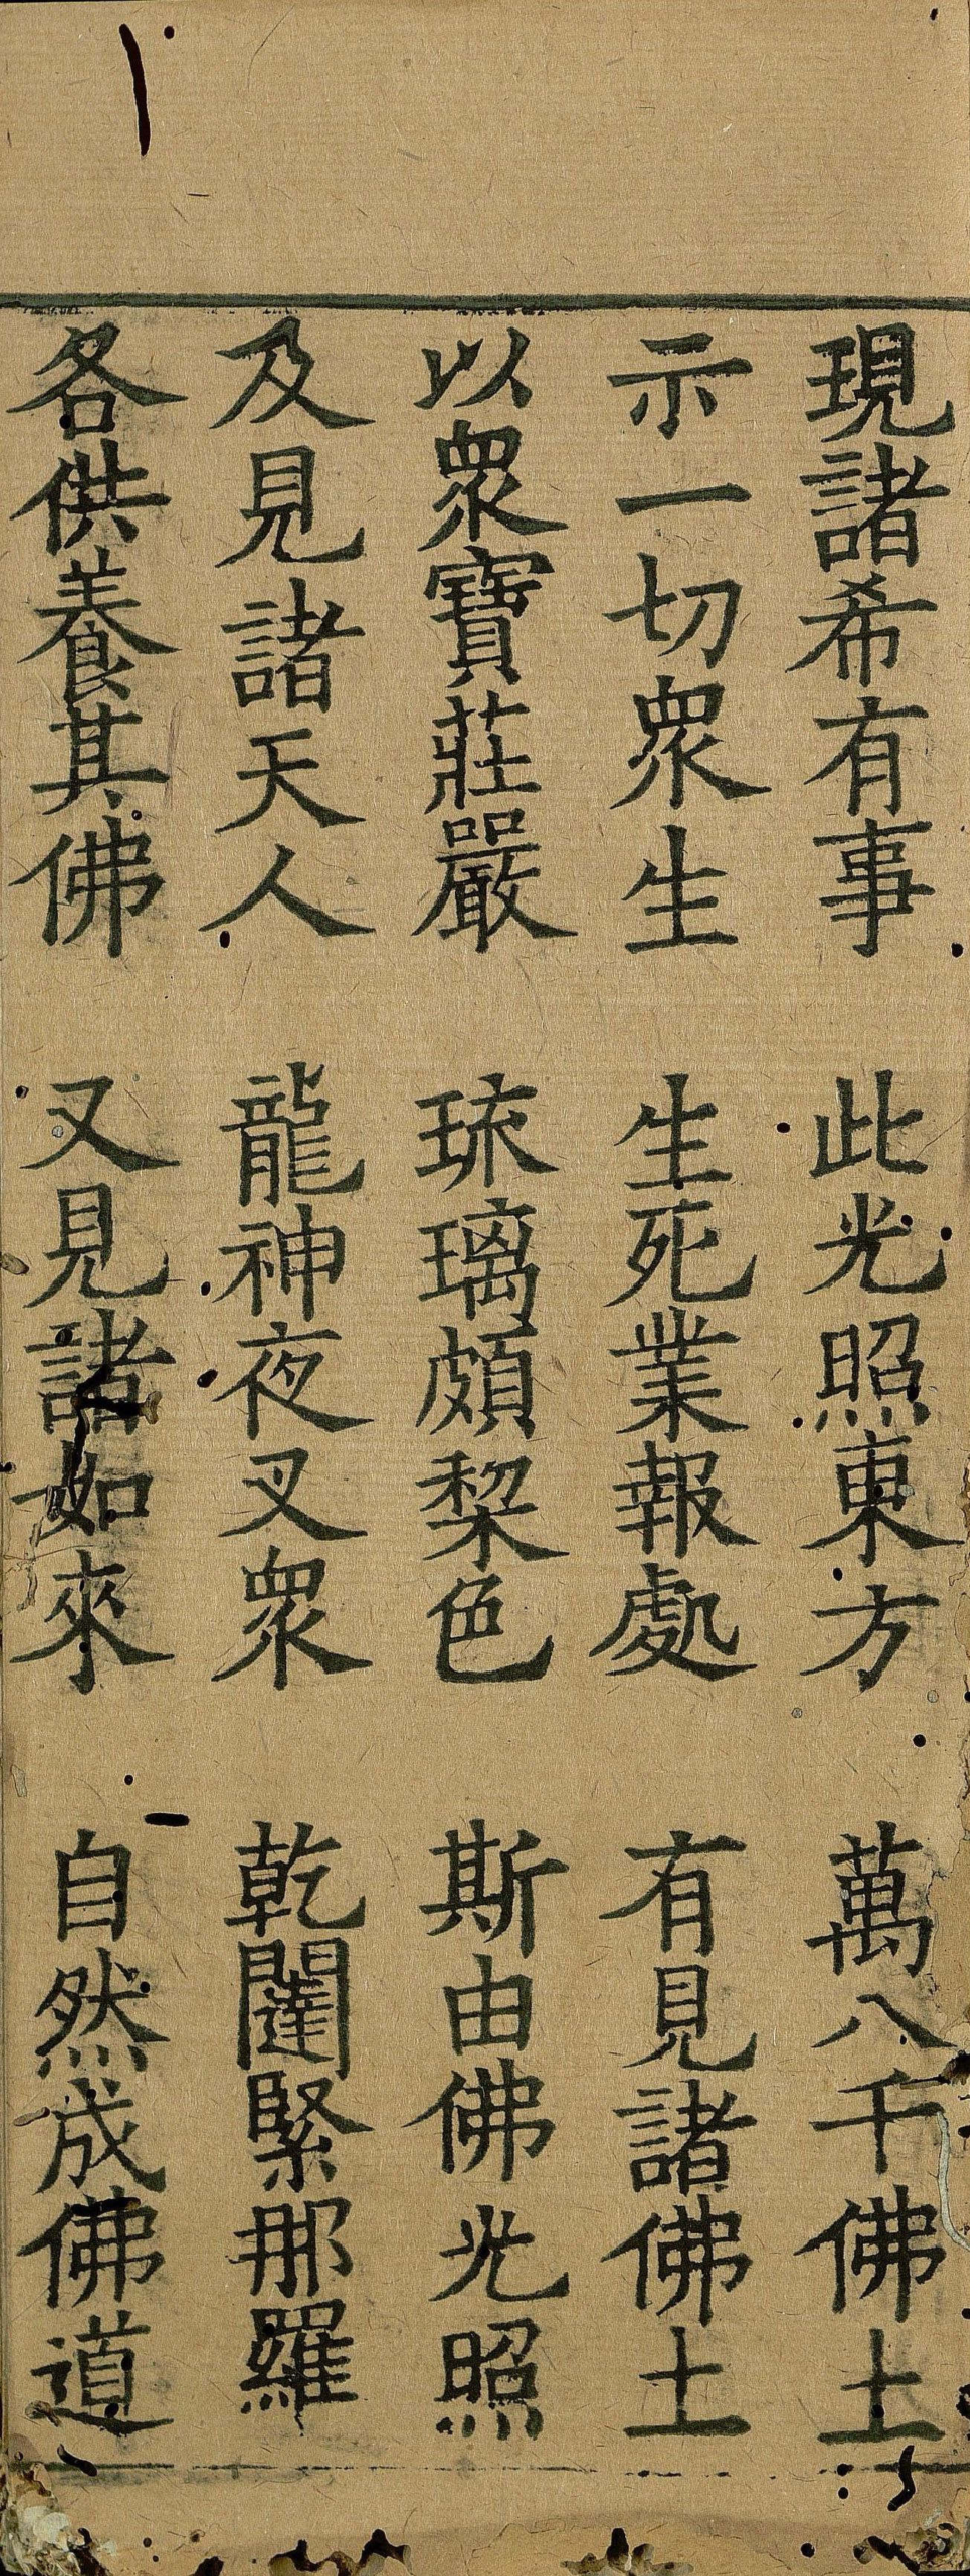 現諸希有事　此光照東方　萬八千佛土
示一切衆生　生死業報處　有見諸佛土
以衆寶莊嚴　琉璃頗棃色　斯由佛光照
及見諸天人　龍神夜叉衆　乾闥緊那羅
各供養其佛　又見諸如來　自然成佛道